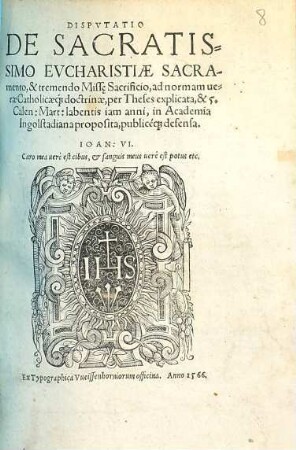 8
DISPVTATIO
DE SACRATIS-
SIMO EVCHARISTIÆ SACRA-
mento, & tremendo Missę Sacrificio, ad normam ue-
ræ Catholicæq́; doctrinæ, per Theses explicata, & 5.
Calen: Mart: labentis iam anni, in Academia
Ingolstadiana proposita, publicéq́; defensa.
IOAN: VI.
Caro mea uerè est cibus, & sanguis meus uerè est potus etc.
IHS
Ex Typographica Vueissenhorniorum officina. Anno 1566.